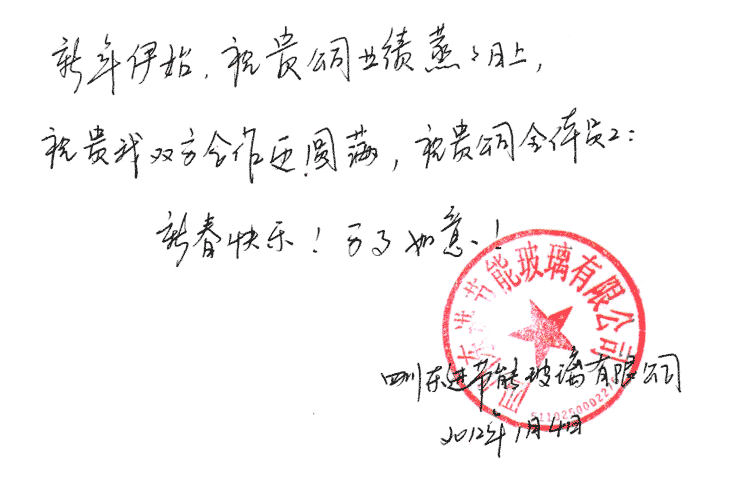 新年伊始，祝贵公司业绩蒸蒸日上，
祝贵我双方合作还圆满，祝贵公司全体员工：
新春快乐！万事如意！
四川东进节能玻璃有限公司
四川东进节能玻璃有限公司
2012年1月4日